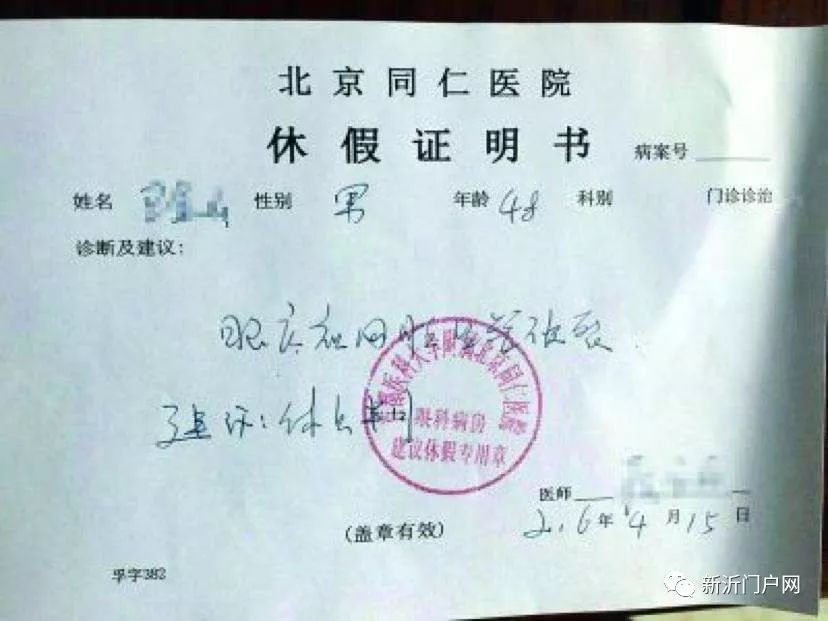 北京同仁医院
休假证明书
病案号
姓名 性别 男 年龄 48 科别 门诊诊治
诊断及建议:
眼
首都医科大学附属北京同仁医院
建议:休
眼科病房
建议休假专用章
医师
2016年4月15日
(盖章有效)
孚字382
新沂门户网